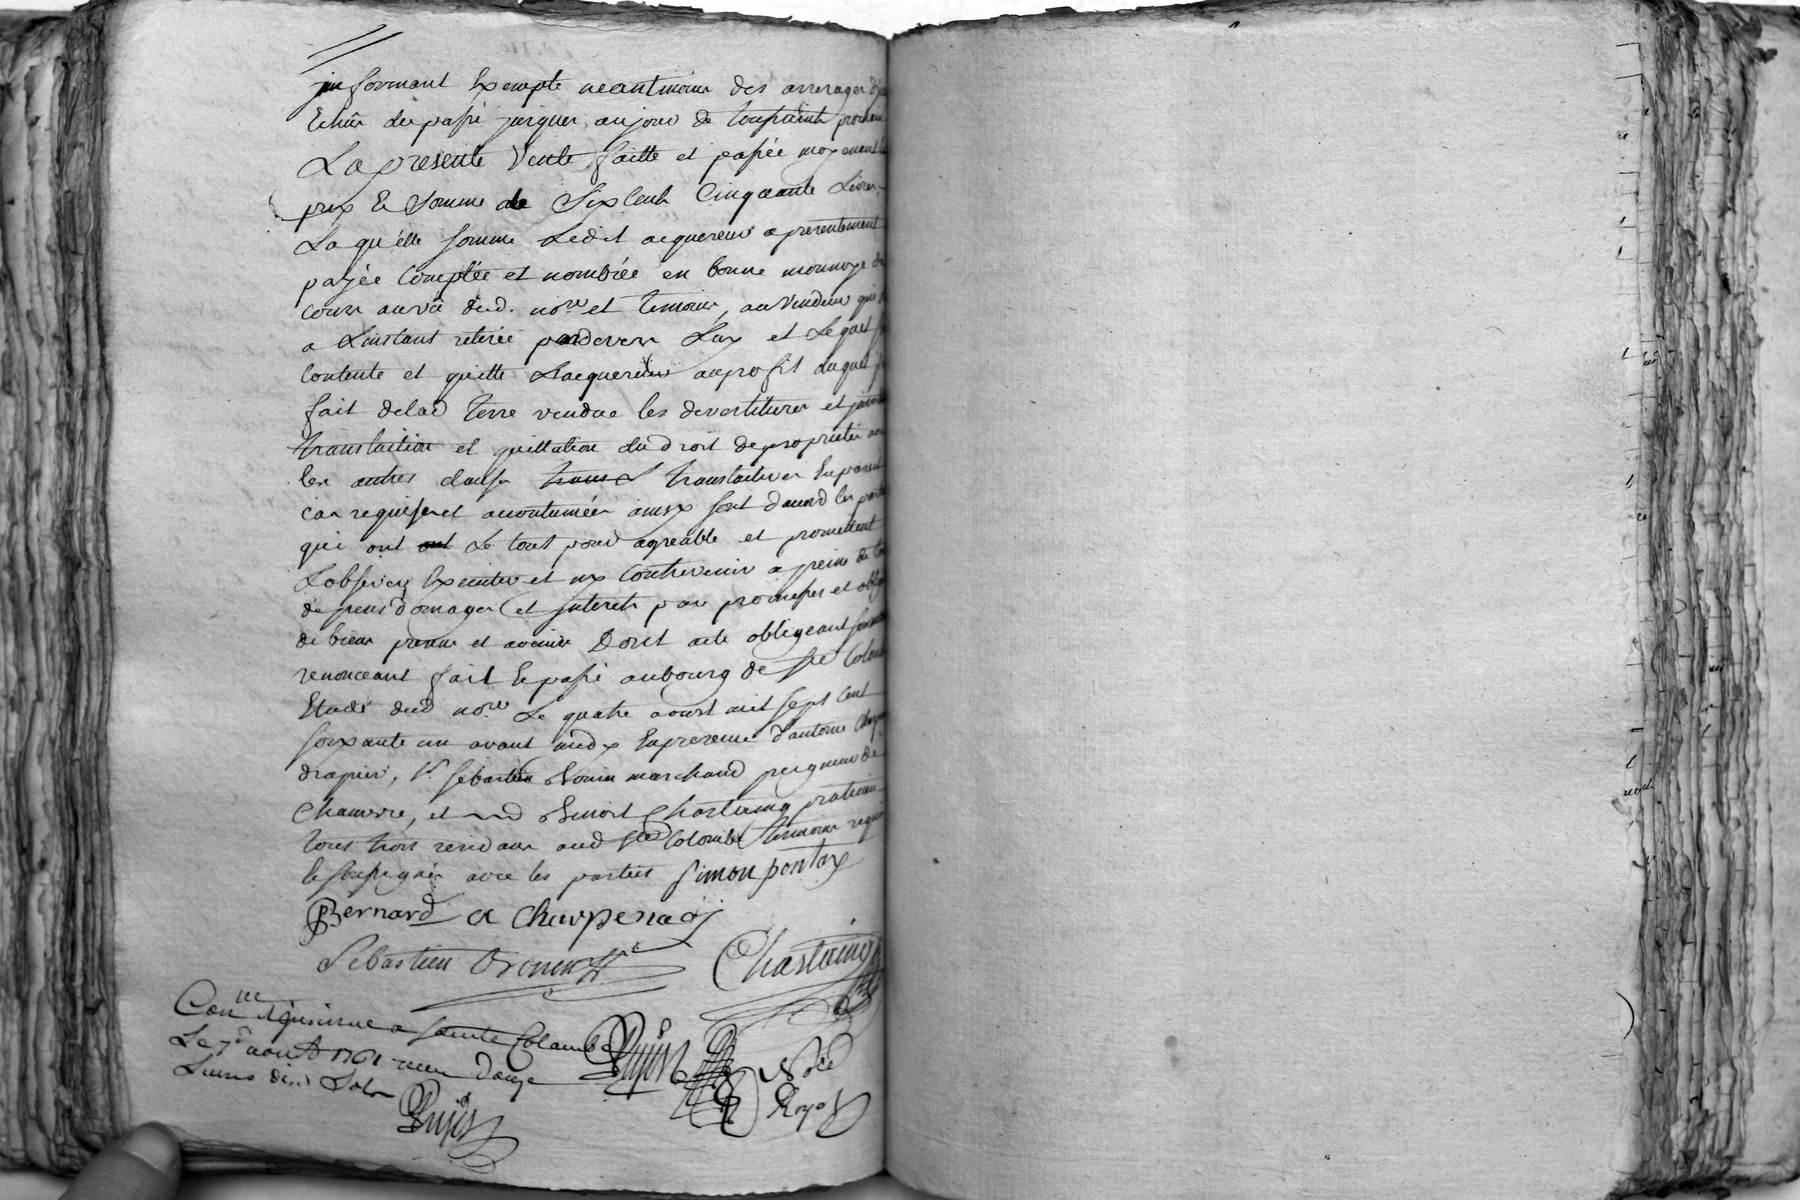 jnformant Exempte neantmoins des arrerages
Echûs du passé jusques aujour de toussaints prochain
La presente Vente faitte et passée moyenant
prix Et Somme de Six Cents Cinquante Livres
Laqu'elle somme Ledit acquereur a presentement
payée Comptée et nombrée en bonne monnoye de
cours auvû dud. nore et temoins, au vendeur qui
a Linstant retirée pardevers Luy et Lequel
Contente et quitte Lacquereur auprofit duquel
fait delad terre vendue les devestitures et
translaition et quittation du droit de proprieté
les autres clauses trans translatives
requises et acoutumées ainsy sont dacord les parties
qui ont ont Le tout pour agreable et promettent
Lobserver Executer et ny Contrevenir a peine de tous
depens domages et jnterets par promesses et
de biens presens et avenir Dont acte obligeant
renonceant fait Et passé aubourg de Ste Colombe
Etude dud nore Le quatre aoust mil sept cent
soixante un avant midy En presence d'antoine
drapier, sr sébastien marchand peigneur de
Chamvre, et Benoit Chastaing praticien
tous trois residans aud Ste Colombe temoins requis
et soussignés avec les parties Simon pontoy
Bernard a Charpenay
Sébastien Chastaing
Conlle & jnsinué a Sainte Colombe
Le 7e aoust 1761 recu douze
Livres dix Sols
Pujos Noré
Royal
Pujos